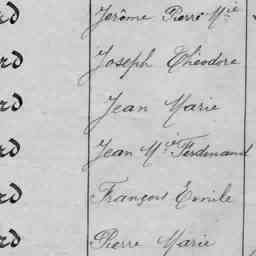 rd Jérôme Pierre Mie
rd Joseph Théodore
rd Jean Marie
rd Jean Mie Ferdinand
rd François Emile
rd Pierre Marie